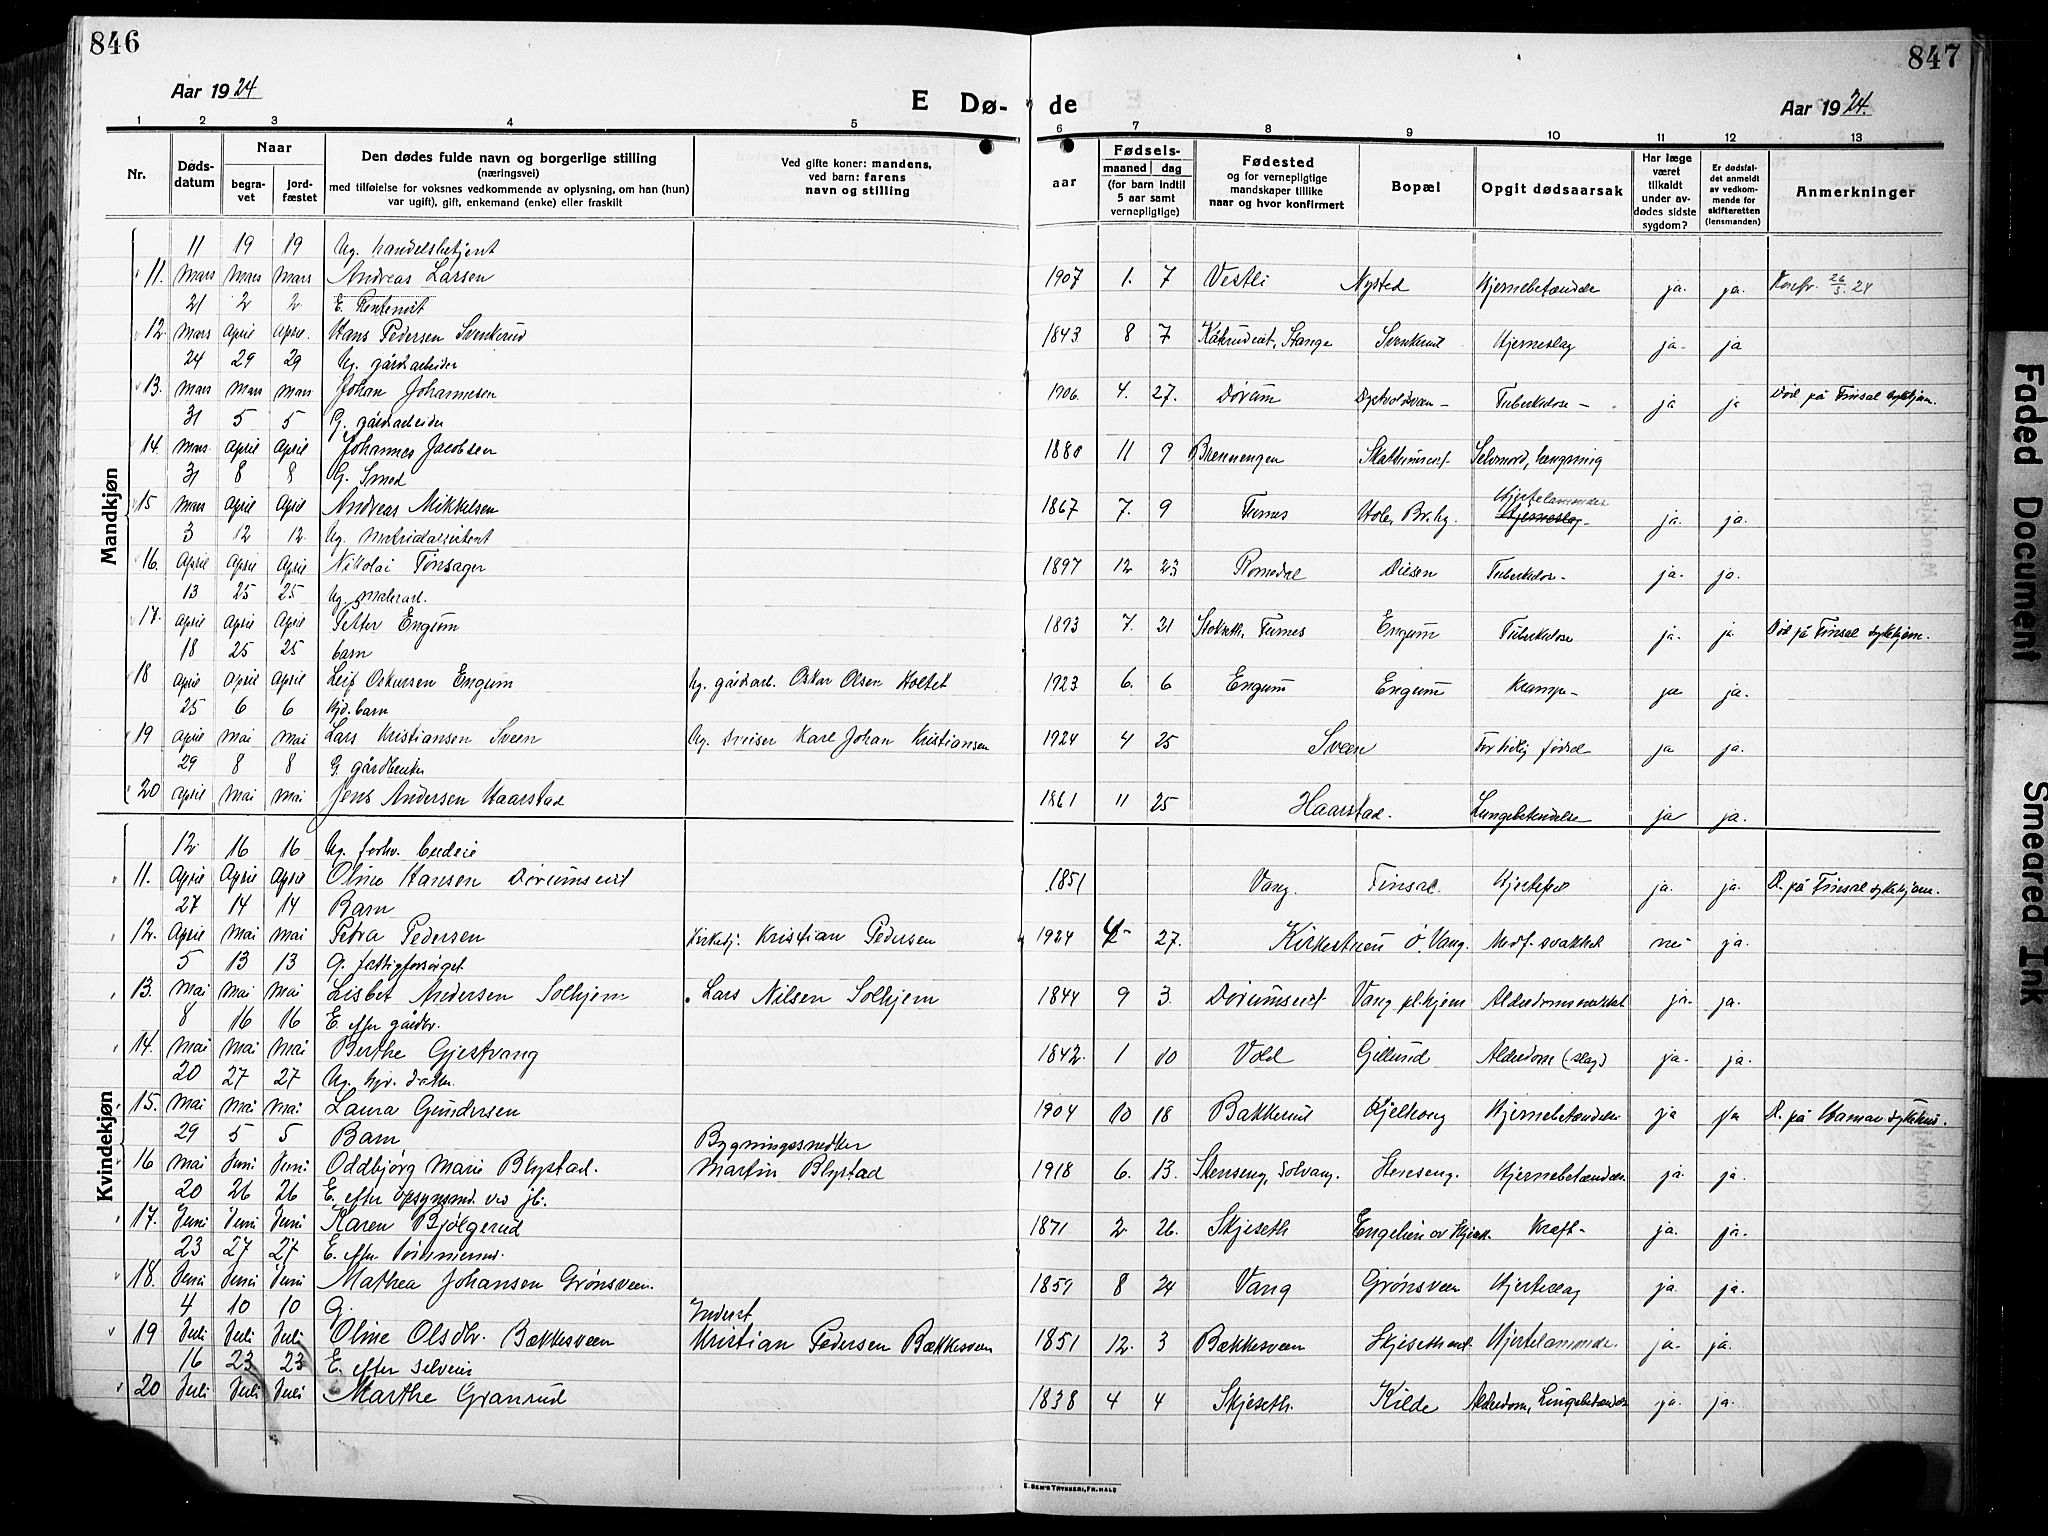 846
847
Aar 1924
E Dø-
de
Aar 1924.
1 2 3 4 5 6 7 8 9 10 11 12 13
Nr.
Døds-
datum
Naar
begra-
vet
jord-
fæstet
Den dødes fulde navn og borgerlige stilling
(næringsvei)
med tilføielse for voksnes vedkommende av oplysning, om han (hun)
var ugift), gift, enkemand (enke) eller fraskilt
Ved gifte koner: mandens,
ved barn: farens
navn og stilling
aar
Fødsels-
maaned dag
(for barn indtil
5 aar samt
vernepligtige)
Fødested
og for vernepligtige
mandskaper tillike
naar og hvor konfirmert
Bopæl
Opgit dødsaarsak
Har læge
været
tilkaldt
under av-
dødes sidste
sygdom?
Er dødsfal-
det anmeldt
av vedkom-
mende for
skifteretten
(lensmanden)
Anmerkninger
Mandkjøn
11 19 19 Ug. handelsbetjent
11. Mars Mars Mars Andreas Larsen 1907 1. 7 Vestli Nysted Hjernebetændelse ja. ja. Konfr. 26/3. 24
21 2 2 E.
12 Mars April April Hans Pedersen Svenkerud 1843 8 7 Stange Svenkerud Hjerneslag ja- ja
24 29 29 Ug. gårdsarbeider
13. Mars Mars Mars Johan Johannesen 1906 4. 27. Dørum Tuberkulose - ja ja Død på Finsal sykehjem.
31 5 5 G. gårdsarbeider
14 Mars April April Johannes Jacobsen 1880 11 9 Brennengen Selvmord, hængning
31 8 8 G. Smed
15 Mars April April Andreas Mikkelsen 1867 7. 9 Furnes Hole, Br.hg. Hjertelammelse Hjerneslag- ja. ja.
3 12 12 Ug.
16. April April April Nikolai Tønsager 1897 12 23 Romedal Dilsen Tuberkulose- ja. ja.
13 25 25 Ug. malerarb.
17. April April April Petter Engum 1893 7. 21 Furnes Engum Tuberkulose ja. ja Død på Finsal sykehjem.
18 25 25 barn
18 April April April Leif Oskarsen Engum Ug. gårdsarb. Oskar Olsen Holtet 1923 6. 6 Engum Engum Krampe- ja ja.
25 6 6 Hjd. barn
19 April Mai Mai Lars Kristiansen Sveen Ug. sveiser Karl Johan Kristiansen 1924 4 25 Sveen For tidlig fødsel ja ja.
29 8 8 G. gårdbruker
20 April Mai Mai Jens Andersen Haarstad 1861 11 25 Haarstad. Lungebetendelse ja ja.
Kvindekjøn
12 16 16 Ug. forhv. budeie
11. April April April Oline Hansen Dørumseiet 1851 Vang. Finsal. Hjertefeil ja. ja. D. på Finsal sykehjem.
27 14 14 Barn
12. April Mai Mai Petra Pedersen Kirketj. Kristian Pedersen 1924 4 27. Kirkestuen Ø. Vang. Medf. svakhet nei ja.
5 13 13 G. fattigforsørget
13. Mai Mai Mai Lisbet Andersen Solhjem Lars Nilsen Solhjem 1844 9 3. Dørumseiet Vang pl.hjem Alderdomssvakhet ja- ja.
8 16 16 E. efter gårdbr.
14. Mai Mai Mai Berthe Gjestvang 1842 1 10 Vold Gillund Alderdom (slag) ja. ja.
20 27 27 Ug. hjv. datter
15. Mai Mai Mai Laura Gundersen 1904 10 18 Bakkerud Hjernebetændelse ja ja D. på Hamar sykehus.
29 5 5 Barn Bygningssnedker
16 Mai Juni Juni Oddbjørg Marie Blystad. Martin Blystad 1918 6. 13. Stenseng, Solvang. Stenseng. Hjernebetændelse. ja. ja.
20 26 26 E. efter opsynsmd. ved jb.
17. Juni Juni Juni Karen Bjølgerud 1871 2 26. Skjeseth Kræft- ja. ja.
23 27 27 E. efter tømmermd.
18. Juni Juni Juni Mathea Johansen Grønsveen. 1859 8 24 Vang Grønsveen Hjerteslag ja. ja.
4 10 10 G. Inderst
19 Juli Juli Juli Oline Olsdtr. Bækkesveen Kristian Pedersen Bækkesveen 1851 12. 3 Bækkesveen Hjertelammelse. ja. ja.
16 23 23 E. efter selveier
20 Juli Juli Juli Marthe Granrud 1838 4 4 Skjeseth. Kilde Alderdom, Lungebetændelse ja. ja.
E. SEM'S TRYKKERI, FR.HALD
Faded Document
Smeared Ink